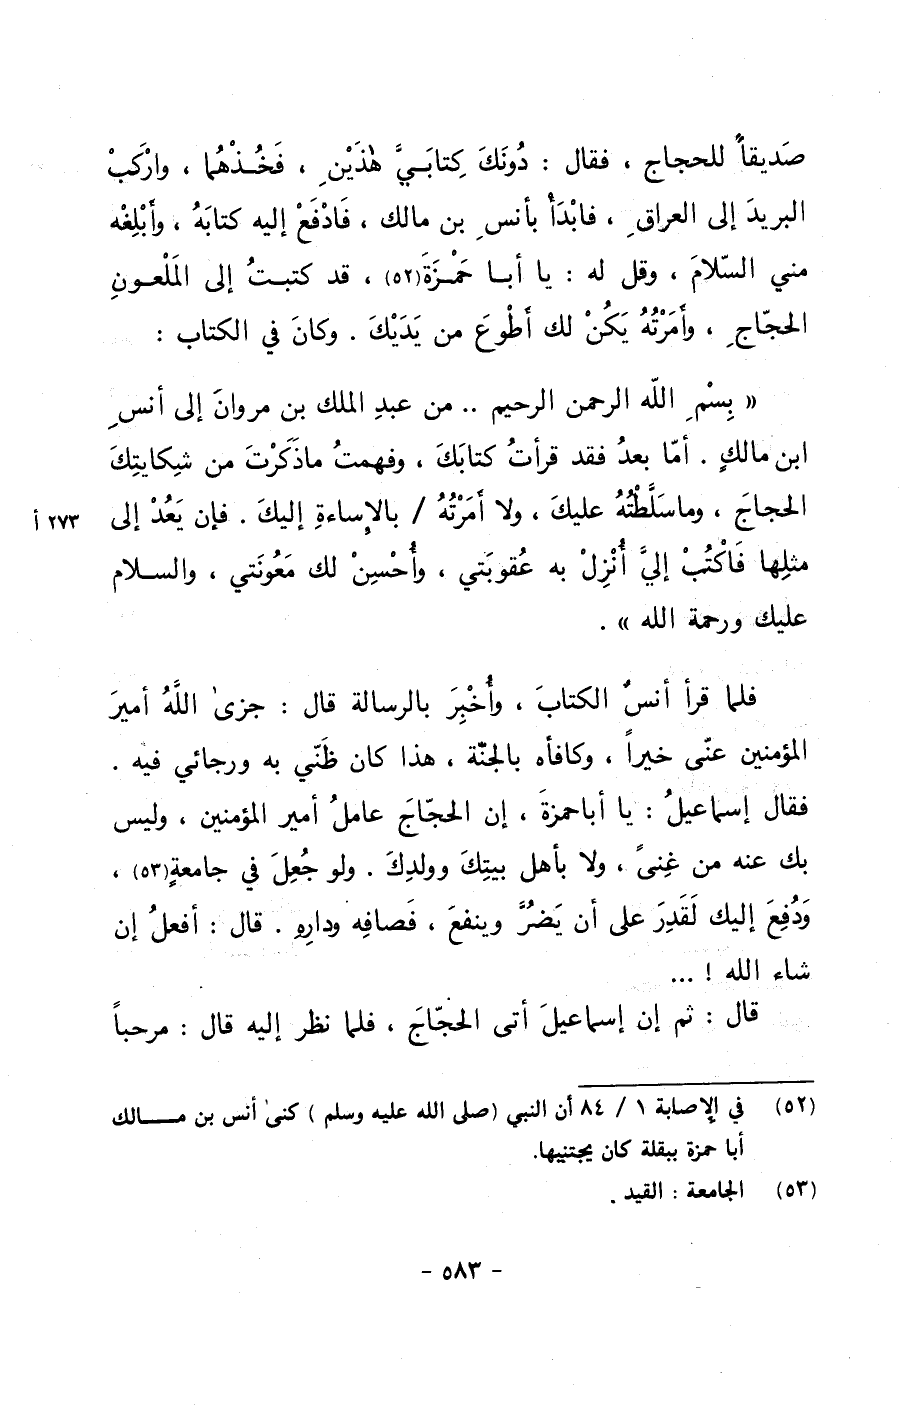 صَديقاً للحجاج ، فقال : دُونَكَ كِتابَيَّ هٰذَيْنِ ، فَخُذْهُما ، وارْكَبْ
البريدَ إلى العراقِ ، فابْدَأْ بأنسِ بن مالك ، فَادْفَعْ إليه كتابَهُ ، وأَبْلِغْه
مني السّلامَ ، وقل له : يا أبا حَمْزَةَ(٥٢) ، قد كتبتُ إلى المَلْعونِ
الحجّاجِ ، وأَمَرْتُهُ يَكُنْ لك أَطْوعَ من يَدَيْكَ . وكانَ في الكتاب :
« بِسْمِ اللّه الرحمن الرحيم .. من عبدِ الملك بن مروانَ إلى أنسِ
ابن مالكٍ . أمّا بعدُ فقد قرأتُ كتابَكَ ، وفهمتُ ماذَكَرْتَ من شِكايتِكَ
الحجاجَ ، وماسَلَّطْتُهُ عليكَ ، ولا أَمَرْتُهُ / بالإِساءةِ إليكَ . فإن يَعُدْ إلى ٢٧٣ أ
مثلِها فَاكْتُبْ إليَّ أُنْزِلْ به عُقوبَتي ، وأُحْسِنْ لك مَعُونَتي ، والسلام
عليك ورحمة الله » .
فلما قرأ أنسٌ الكتابَ ، وأُخْبِرَ بالرسالة قال : جزىٰ اللَّهُ أميرَ
المؤمنين عنّى خيراً ، وكافأه بالجنّة ، هذا كان ظَنّي به ورجائي فيه .
فقال إسماعيلُ : يا أباحمزةَ ، إن الحجّاجَ عاملُ أمير المؤمنين ، وليس
بك عنه من غِنىً ، ولا بأهل بيتِكَ وولدِكَ . ولو جُعِلَ في جامعةٍ(٥٣) ،
وَدُفِعَ إليك لَقَدِرَ على أن يَضُرَّ وينفعَ ، فَصافِه ودارِهِ . قال : أفعلُ إن
شاء الله ! ...
قال : ثم إن إسماعيلَ أتى الحجّاجَ ، فلما نظر إليه قال : مرحباً
(٥٢) في الإصابة ١ / ٨٤ أن النبي (صلى الله عليه وسلم ) كنىٰ أنس بن مالك
أبا حمزة ببقلة كان يجتنيها.
(٥٣) الجامعة : القيد .
- ٥٨٣ -